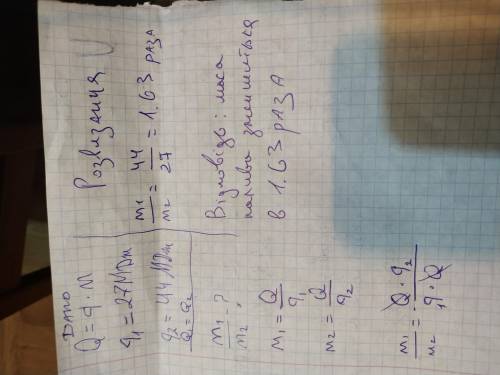 Дано
Q = q · m
q₁ = 27 МДж
q₂ = 44 МДж
Q₁ = Q₂
m₁/m₂ - ?
m₁ = Q/q₁
m₂ = Q/q₂
m₁/m₂ = Q · q₂/q₁ · Q
Розвязання
m₁/m₂ = 44/27 = 1.63 раза
Відповідь: маса
палива зменшиться
в 1.63 раза